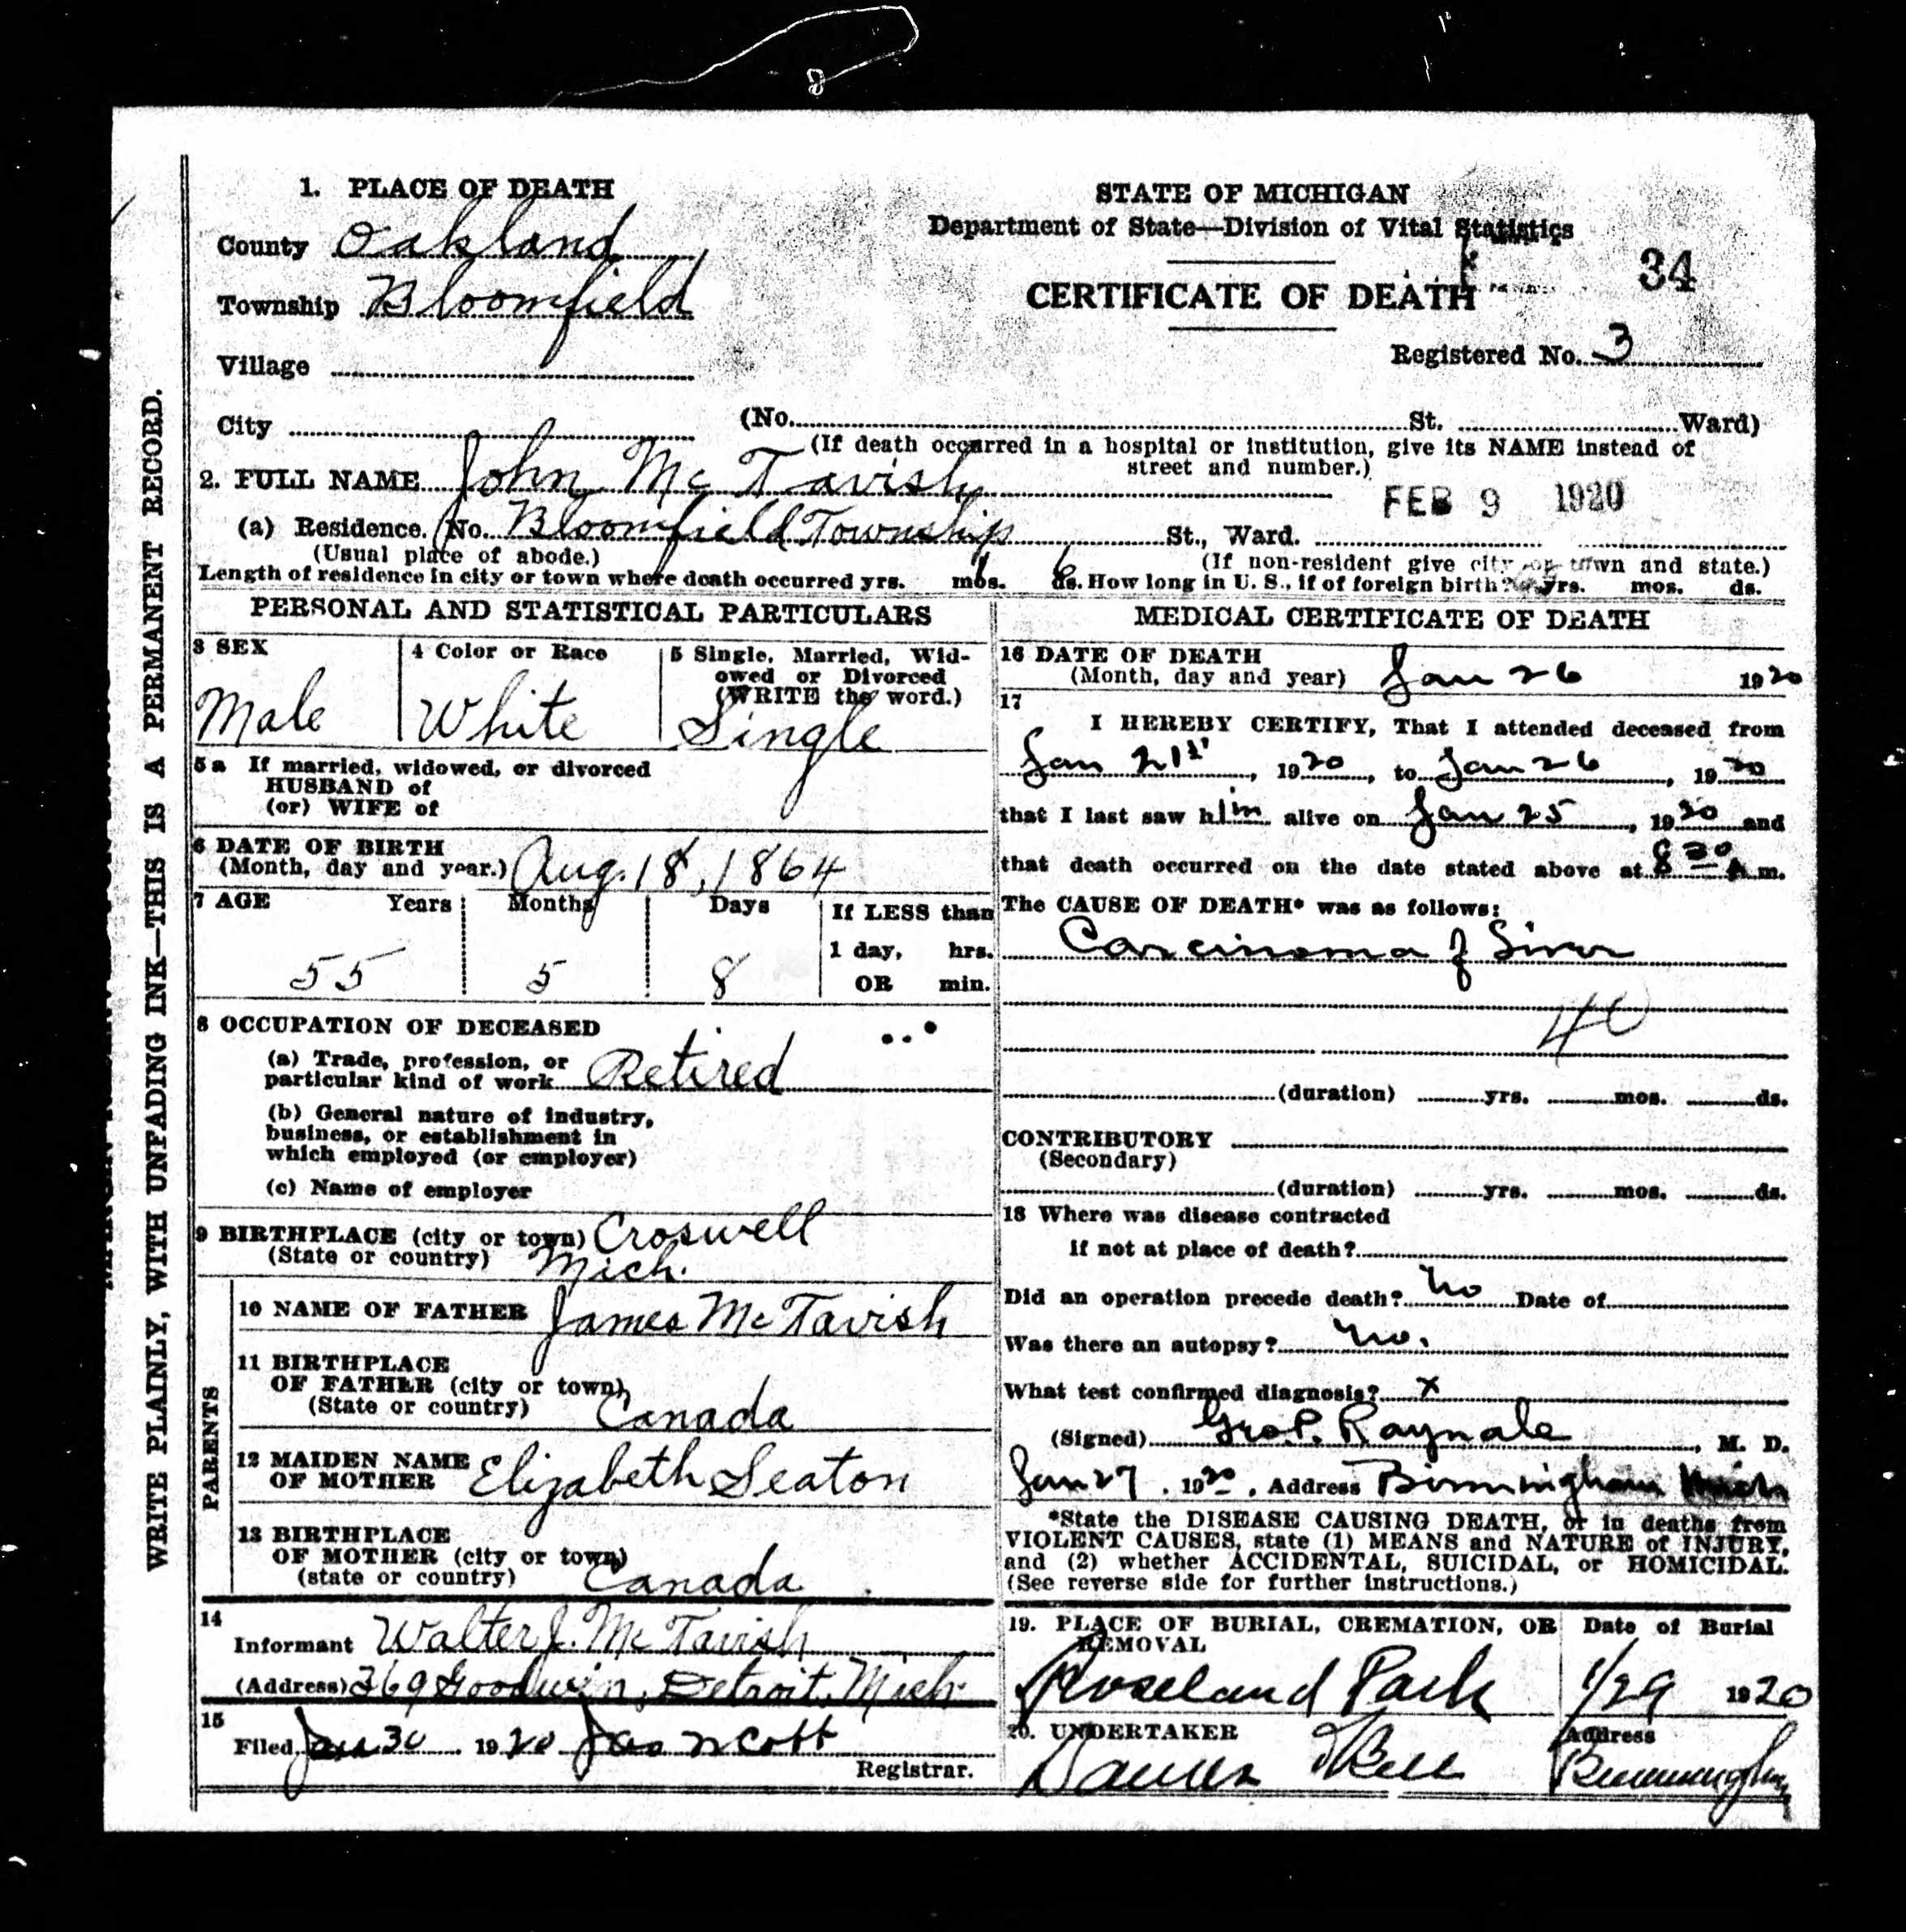 8
1. PLACE OF DEATH
County Oakland
Township Bloomfield
Village
City
STATE OF MICHIGAN
Department of State—Division of Vital Statistics
34
CERTIFICATE OF DEATH
Registered No. 3
(No. St. Ward)
(If death occurred in a hospital or institution, give its NAME instead of
street and number.)
2. FULL NAME John McTavish
FEB 9 1920
(a) Residence. No. Bloomfield Township St., Ward.
(Usual place of abode.) (If non-resident give city or town and state.)
Length of residence in city or town where death occurred yrs. mos. 6 ds. How long in U. S., if of foreign birth? yrs. mos. ds.
WRITE PLAINLY, WITH UNFADING INK—THIS IS A PERMANENT RECORD.
PERSONAL AND STATISTICAL PARTICULARS
3 SEX
Male
4 Color or Race
White
5 Single, Married, Wid-
owed or Divorced
(WRITE the word.)
Single
5a If married, widowed, or divorced
HUSBAND of
(or) WIFE of
6 DATE OF BIRTH
(Month, day and year.) Aug. 18, 1864
7 AGE Years Months Days If LESS than
1 day, hrs.
55 5 8 OR min.
8 OCCUPATION OF DECEASED
(a) Trade, profession, or
particular kind of work Retired
(b) General nature of industry,
business, or establishment in
which employed (or employer)
(c) Name of employer
9 BIRTHPLACE (city or town) Croswell
(State or country) Mich.
PARENTS
10 NAME OF FATHER James McTavish
11 BIRTHPLACE
OF FATHER (city or town)
(State or country) Canada
12 MAIDEN NAME
OF MOTHER Elizabeth Seaton
13 BIRTHPLACE
OF MOTHER (city or town)
(state or country) Canada
14
Informant Walter J. McTavish
(Address) 369 Goodwin, Detroit, Mich.
15
Filed Jan 30 1920
Registrar.
MEDICAL CERTIFICATE OF DEATH
16 DATE OF DEATH
(Month, day and year) Jan 26 1920
17
I HEREBY CERTIFY, That I attended deceased from
Jan 21st, 1920, to Jan 26, 1920
that I last saw him alive on Jan 25, 1920 and
that death occurred on the date stated above at A m.
The CAUSE OF DEATH* was as follows:
Carcinoma of Liver
40
(duration) yrs. mos. ds.
CONTRIBUTORY
(Secondary)
(duration) yrs. mos. ds.
18 Where was disease contracted
if not at place of death?
Did an operation precede death? No Date of
Was there an autopsy? No.
What test confirmed diagnosis? X
(Signed) Geo. P. Raynale, M. D.
Jan 27, 1920, Address Birmingham Mich
*State the DISEASE CAUSING DEATH, or in deaths from
VIOLENT CAUSES, state (1) MEANS and NATURE of INJURY,
and (2) whether ACCIDENTAL, SUICIDAL, or HOMICIDAL.
(See reverse side for further instructions.)
19. PLACE OF BURIAL, CREMATION, OR
REMOVAL
Roseland Park
Date of Burial
1/29 1920
20. UNDERTAKER
Bell
Address
Birmingham